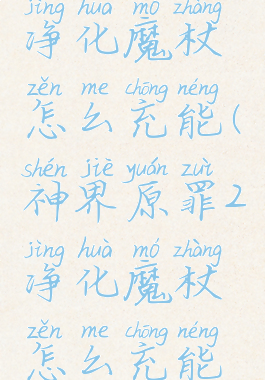 jìng huà mó zhàng
净化魔杖
zěn me chōng néng
怎么充能(
shén jiè yuán zuì
神界原罪2
jìng huà mó zhàng
净化魔杖
zěn me chōng néng
怎么充能